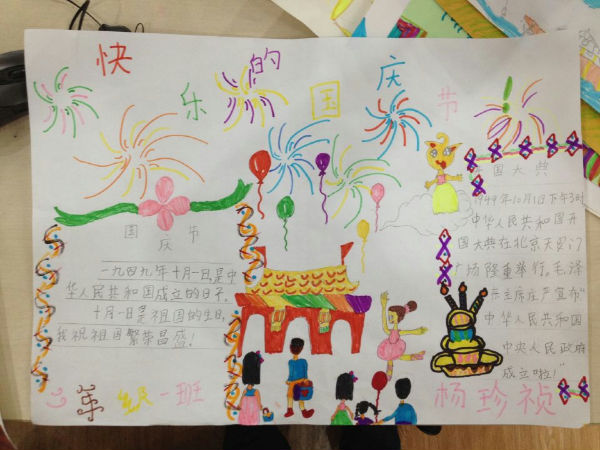 快乐的国庆节
国庆节
一九四九年十月一日是中
华人民共和国成立的日子,
十月一日是祖国的生日,
我祝祖国繁荣昌盛!
一班
国大典
1949年10月1日下午3时
中华人民共和国开
国大典在北京天安门
广场隆重举行。毛泽
东主席庄严宣布"
中华人民共和国
中央人民政府
成立啦!"
杨珍祯